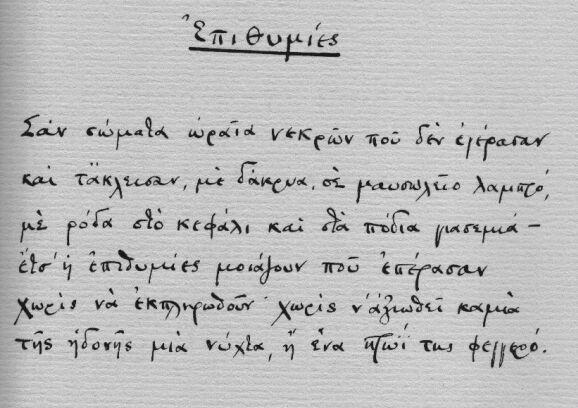 Ἐπιθυμίες
Σὰν σώματα ὡραῖα νεκρῶν ποῦ δὲν ἐγέρασαν
καὶ τἄκλεισαν, μὲ δάκρυα, σὲ μαυσωλεῖο λαμπρό,
μὲ ρόδα στὸ κεφάλι καὶ στὰ πόδια γιασεμιά —
ἔτσ' ἡ ἐπιθυμίες μοιάζουν ποῦ ἐπέρασαν
χωρὶς νὰ ἐκπληρωθοῦν· χωρὶς ν' ἀξιωθεῖ καμιὰ
τῆς ἡδονῆς μιὰ νύχτα, ἢ ἕνα πρωΐ της φεγγερό.